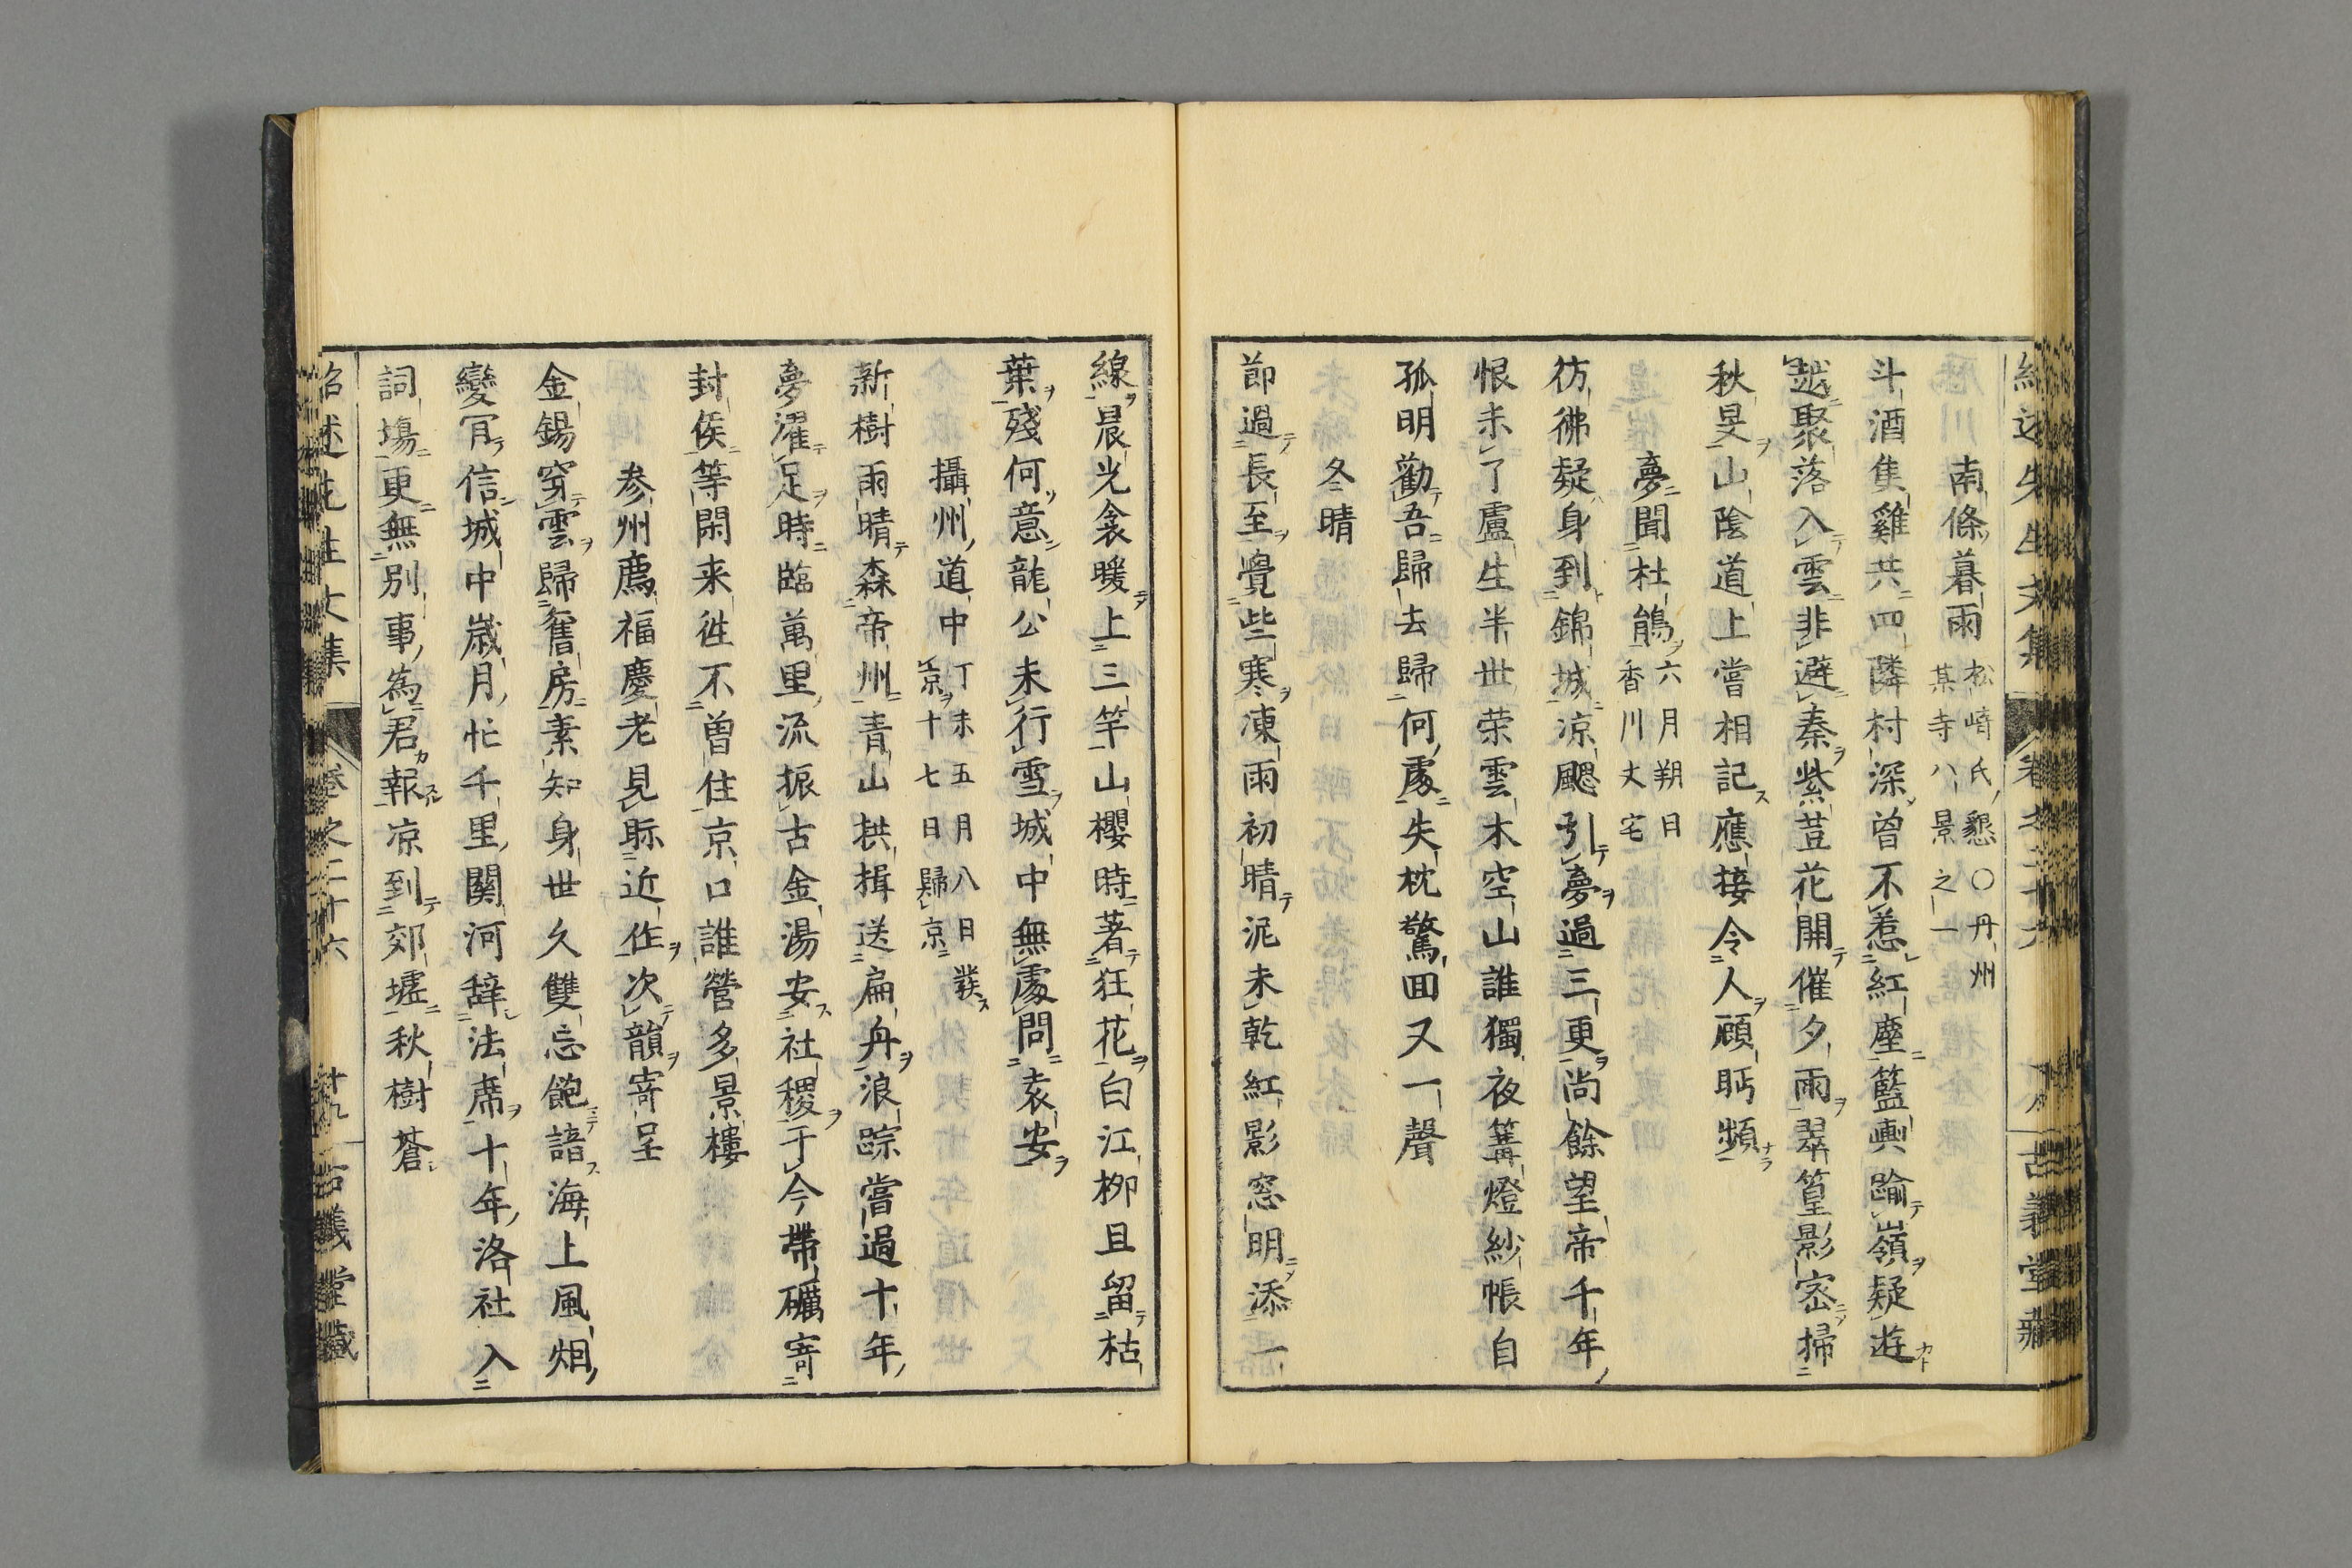 南條暮雨 松﨑氏懇○丹州某寺八景之一
斗酒隻雞共四隣村深曾不惹紅塵籃輿踰嶺疑遊
越聚落入雲非避秦紫荳花開催夕雨翠篁影密掃
秋旻山陰道上嘗相記應接令人顧眄頻
夢聞杜鵑 六月朔日香川丈宅
彷彿疑身到錦城凉颸引夢過三更尚餘望帝千年
恨未了盧生半世荣雲木空山誰獨夜篝燈紗帳自
孤明勸吾歸去歸何處失枕驚回又一聲
冬晴
節過長至覺些寒凍雨初晴泥未乾紅影窓明添一
線晨光衾暖上三竿山櫻時著狂花白江柳且留枯
葉殘何意龍公未行雪城中無處問袁安
攝州道中 丁未五月八日發京十七日歸京
新樹雨晴森帝州青山拱揖送扁舟浪踪嘗過十年
夢濯足時臨萬里流振古金湯安社稷于今帶礪寄
封侯等閑来徃不曾住京口誰營多景樓
参州廌福慶老見眎近作次韻寄呈
金錫穿雲歸舊房素知身世久雙忘飽諳海上風烟
變冐信城中歳月忙千里關河辭法席十年洛社入
詞塲更無別事為君報凉到郊墟秋樹蒼
卷之二十六
十九
古義堂藏